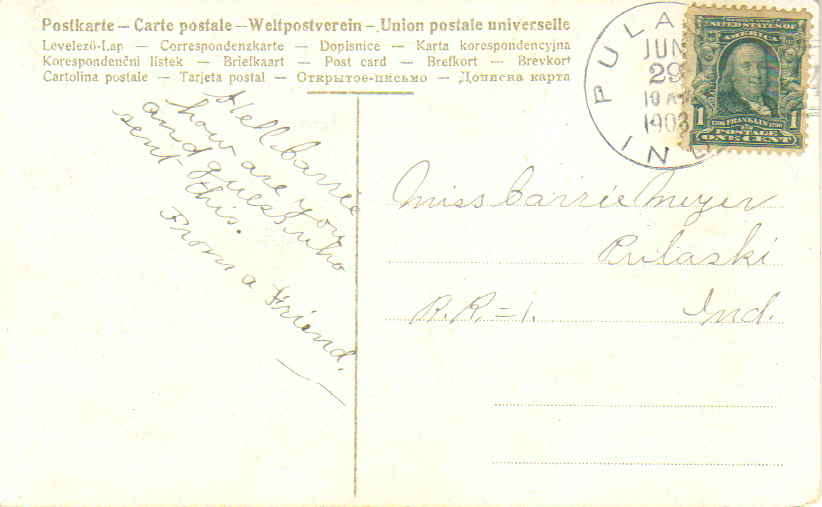 Postkarte – Carte postale – Weltpostverein – Union postale universelle
Levelező-Lap — Correspondenzkarte — Dopisnice — Karta korespondencyjna
Korespondenční lístek — Briefkaart — Post card — Brefkort — Brevkort
Cartolina postale — Tarjeta postal — Открытое-письмо — Дописна карта
PULA
JUN
29
10 AM
IND
UNITED STATES OF
AMERICA
1706 FRANKLIN 1790
1 1
POSTAGE
ONE CENT
Hell Carrie
how are you
and guess who
sent this.
From a Friend.
Miss Carrie Meyer
Pulaski
R.R. = 1. Ind.